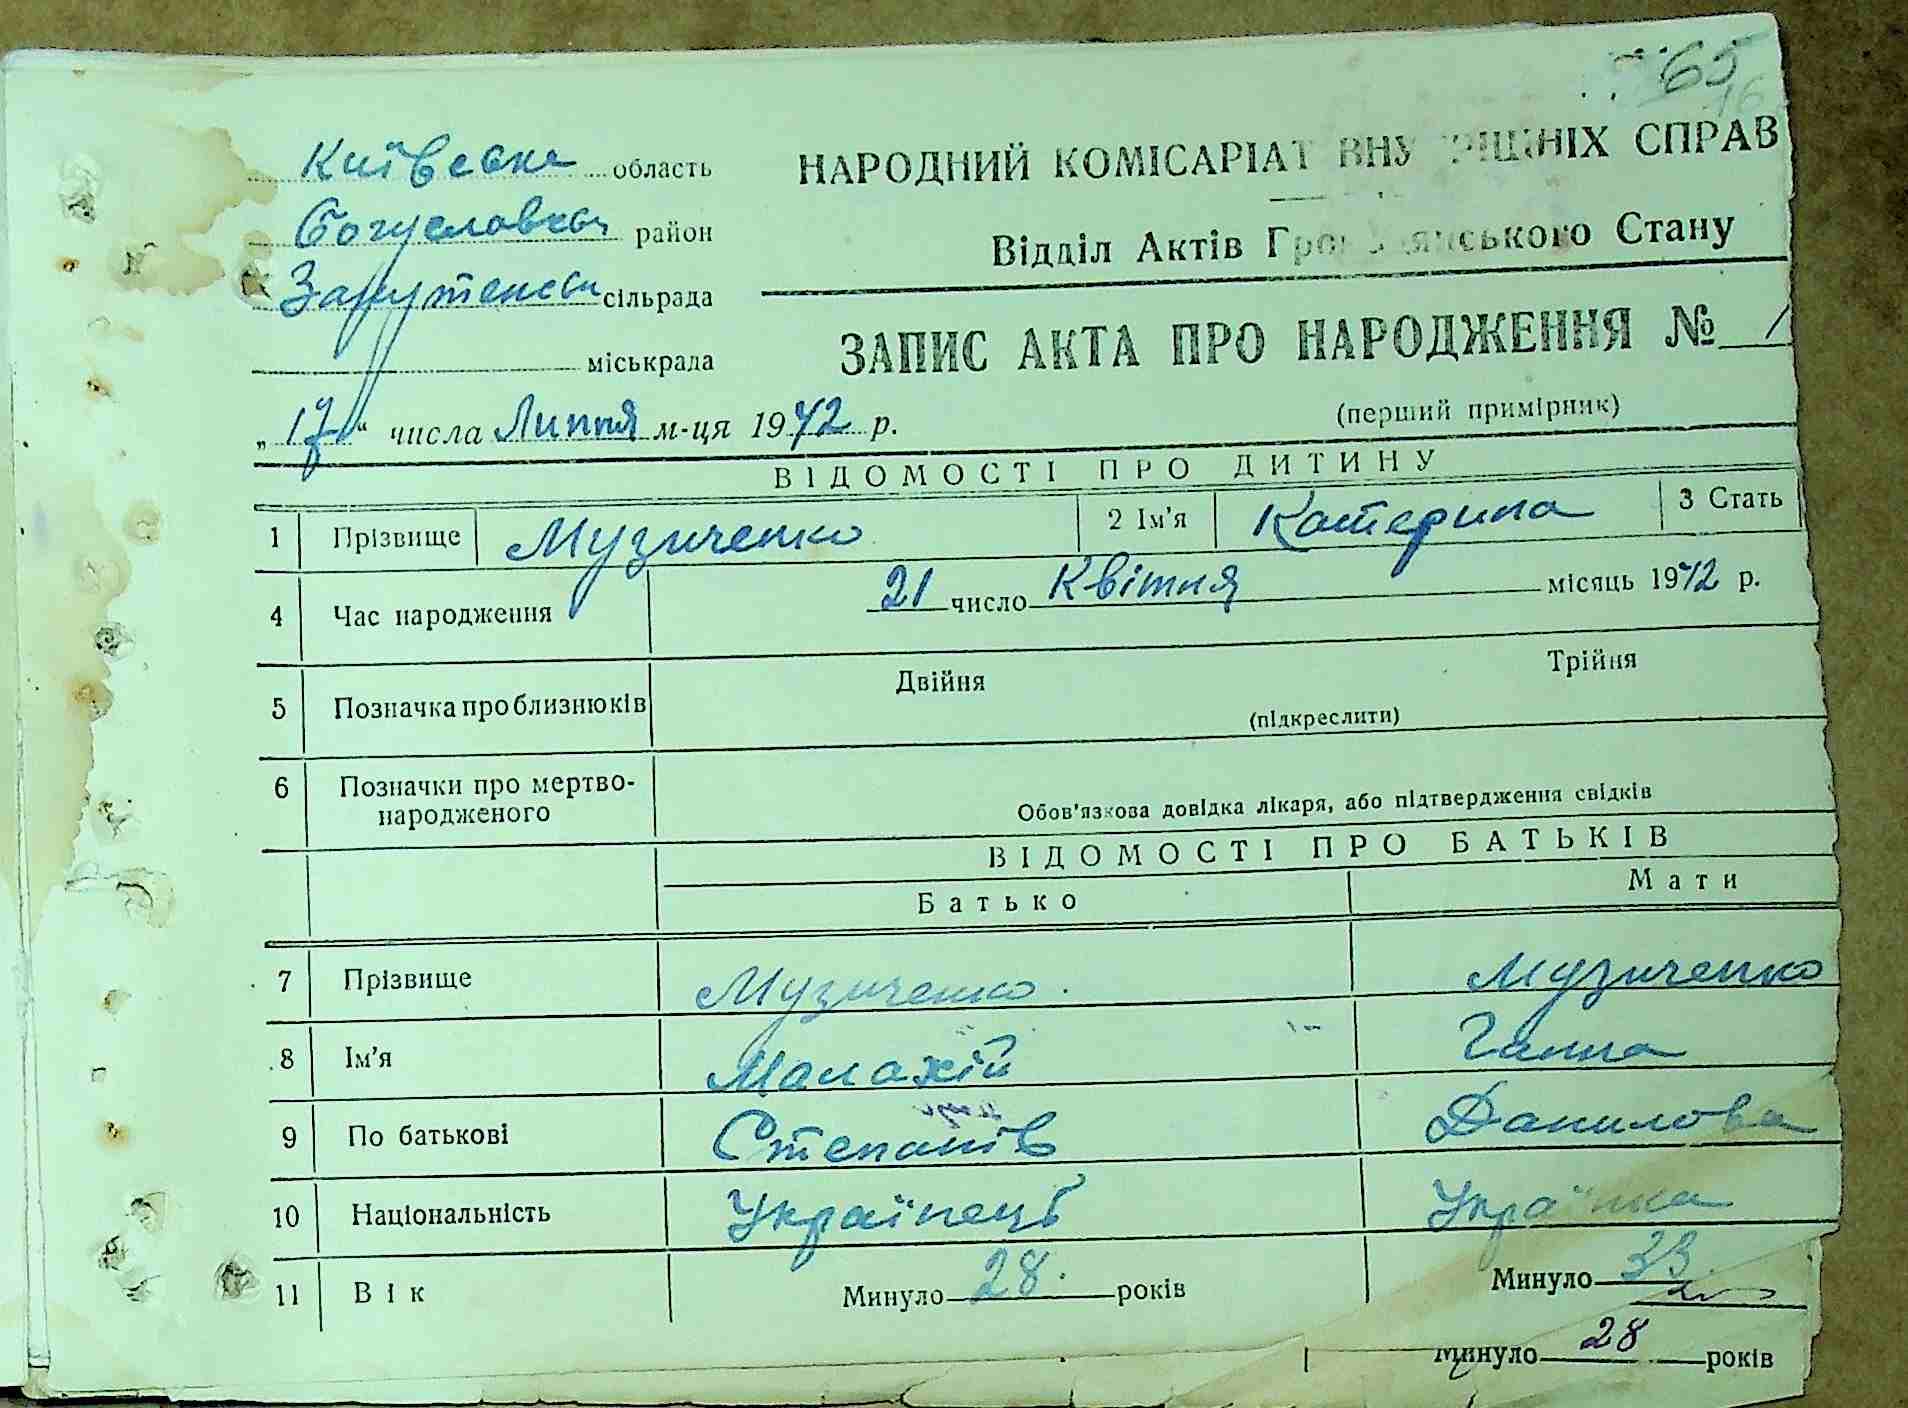 65
Київська область
НАРОДНИЙ КОМІСАРІАТ ВНУТРІШНІХ СПРАВ
Богуславськ район
Відділ Актів Громадянського Стану
сільрада
міськрада
ЗАПИС АКТА ПРО НАРОДЖЕННЯ № 1
(перший примірник)
„17“ числа Липня м-ця 1942 р.
ВІДОМОСТІ ПРО ДИТИНУ
1 Прізвище Музиченко 2 Ім'я Катерина 3 Стать
4 Час народження 21 число Квітня місяць 1942 р.
5 Позначка про близнюків Двійня Трійня
(підкреслити)
6 Позначки про мертво-
народженого
Обов'язкова довідка лікаря, або підтвердження свідків
ВІДОМОСТІ ПРО БАТЬКІВ
Батько Мати
7 Прізвище Музиченко Музиченко
8 Ім'я Малахій Ганна
9 По батькові Степанів Данилова
10 Національність Українець Українка
11 Вік Минуло 28 років Минуло 33
Минуло 28 років